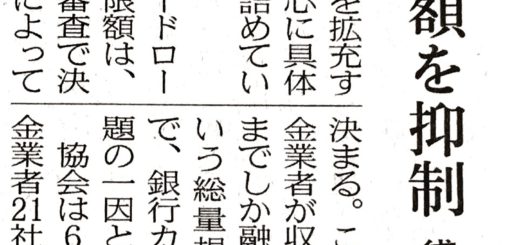 額を抑制
を拡充す
心に具体
詰めてい
ードロー
限額は、
審査で決
によって
決まる。こ
金業者が収
までしか融
いう総量規
で、銀行カ
題の一因と
協会は6
金業者21社